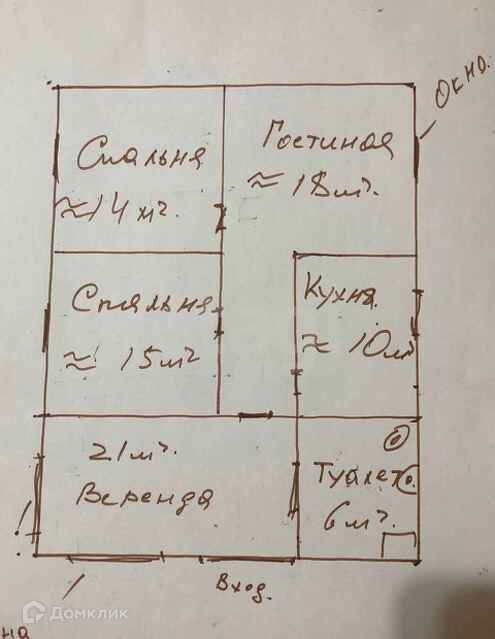 Окно.
Спальня
≈14 м².
Гостиная
≈ 18м².
Спальня
≈ 15м²
Кухня
≈ 10м²
21м².
Веренда
Туалет
6м².
Вход.
на
Домклик